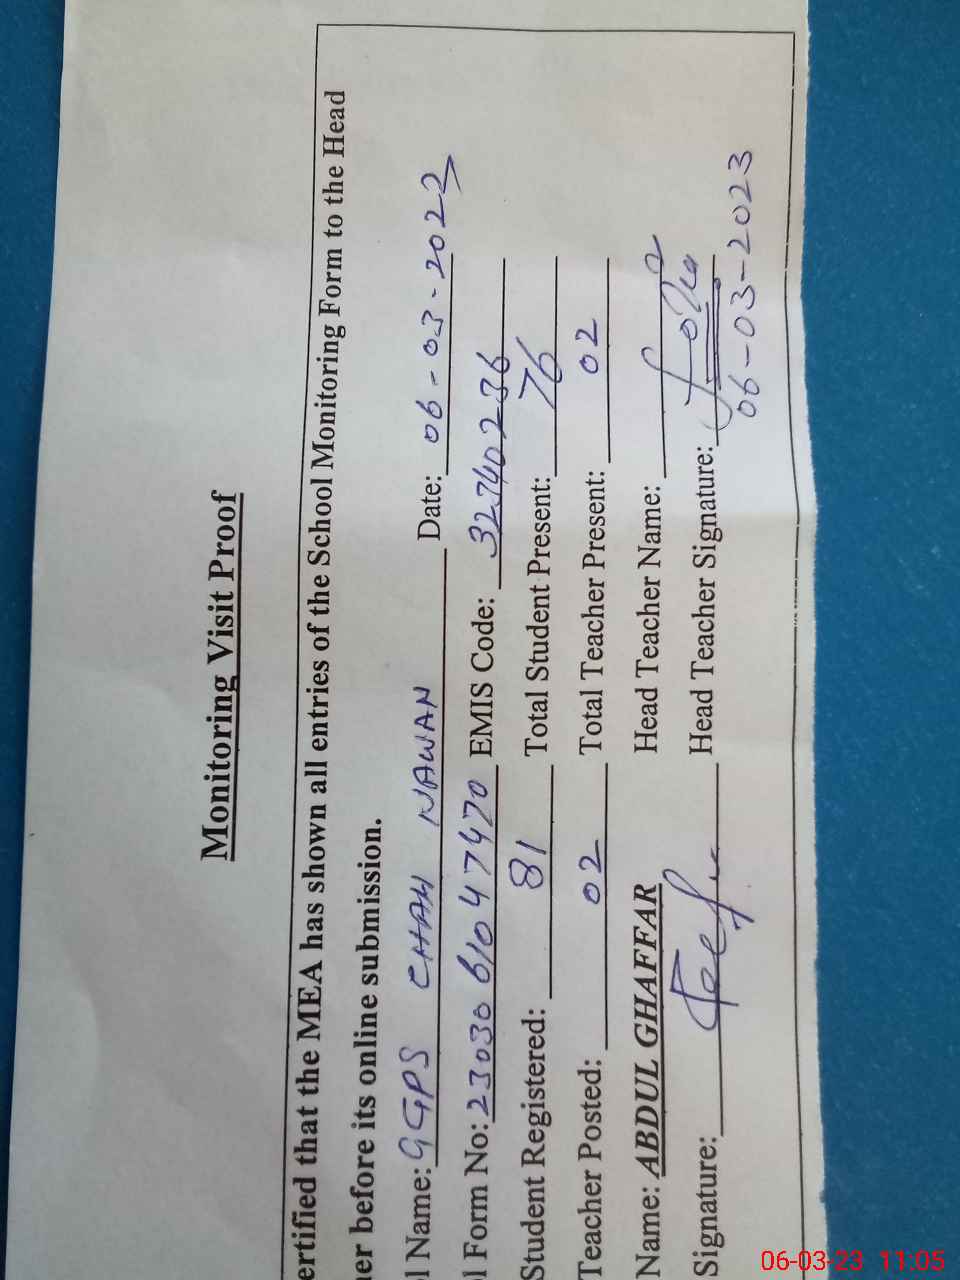 Monitoring Visit Proof
ertified that the MEA has shown all entries of the School Monitoring Form to the Head
her before its online submission.
ol Name: GGPS CHAH NAWAN Date: 06-03-2023
l Form No: 23030 6104 7470 EMIS Code: 32740236
Student Registered: 81 Total Student Present: 76
Teacher Posted: 02 Total Teacher Present: 02
Name: ABDUL GHAFFAR Head Teacher Name:
Signature: Head Teacher Signature:
06-03-2023
06-03-23 11:05